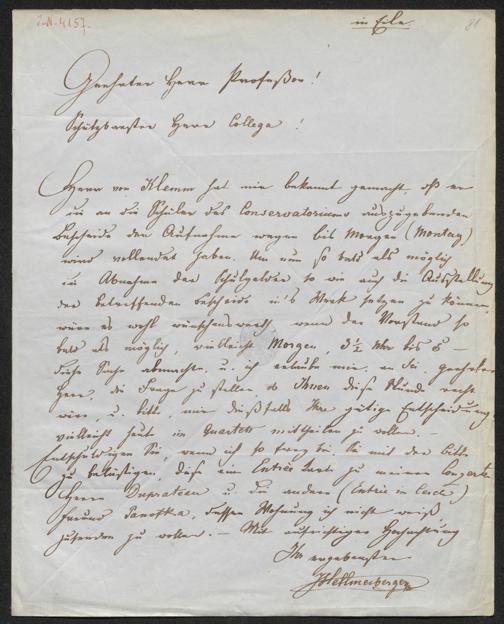 I.N. 4157.
in Eile.
81
Geehrter Herr Professor!
Schätzbarster Herr College!
Herr von Klemm hat mir bekannt gemacht, daß er
die an die Schüler des Conservatoriums auszugebenden
Bescheide der Aufnahme wegen bis Morgen (Montag)
wird vollendet haben. Um nun so bald als möglich
die Abnahme der Schulgelder so wie auch die Ausstellung
der betreffenden Bescheide in's Werk setzen zu können,
wäre es wohl wünschenswerth, wenn der Vorstand so
bald als möglich, vielleicht Morgen, 3 1/2 Uhr bis 5 –
diese Sache abmachte, u. ich erlaube mir, an Sie, geehrter
Herr, die Frage zu stellen, ob Ihnen diese Stunde recht
wäre, u. bitte, mir dießfalls Ihre gütige Entscheidung
vielleicht heut im Quartett mittheilen zu wollen. –
Entschuldigen Sie, wenn ich so frey bin, Sie mit der Bitte
zu belästigen, diese eine Entrée Karte zu meinem Conzerte
Herrn u. die andere (Entrée in Cercle)
Freund Panofka, dessen Wohnung ich nicht weiß
zusenden zu wollen. – Mit aufrichtiger Hochachtung
Ihr ergebenster
JHellmesberger